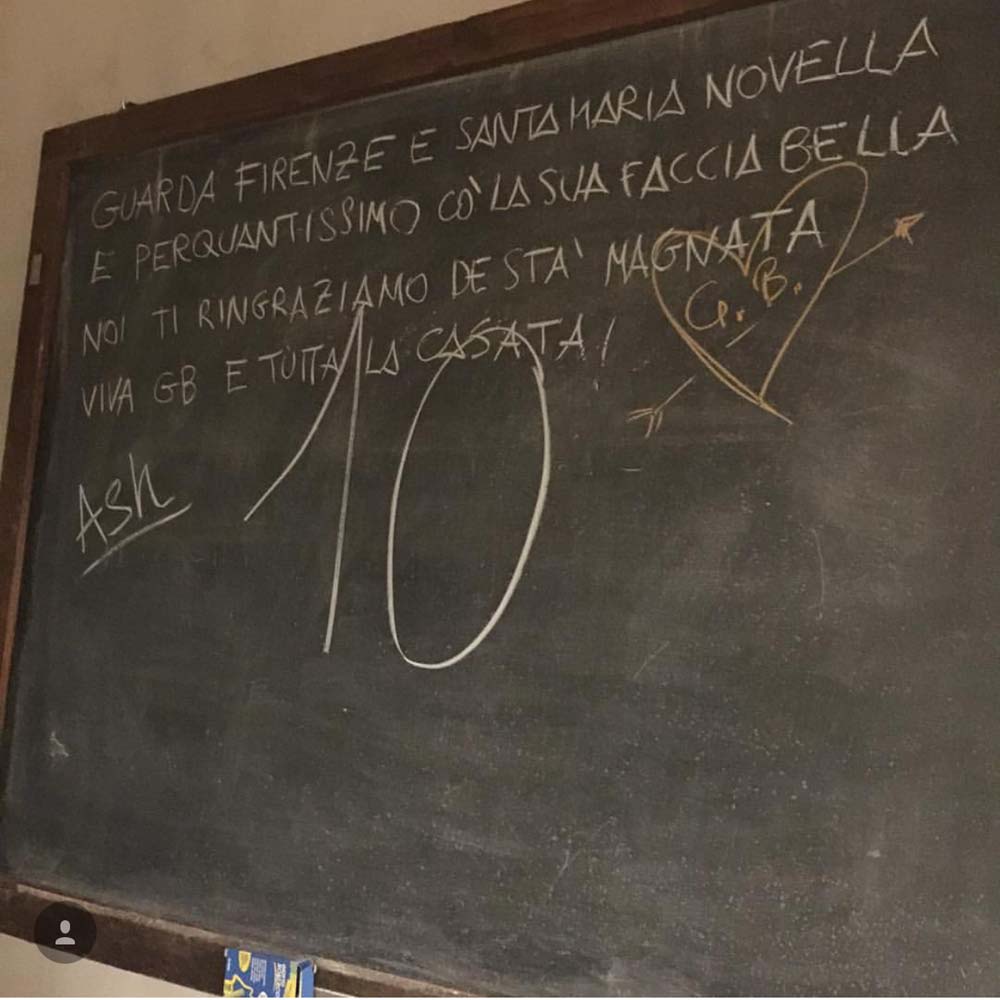 GUARDA FIRENZE E SANTA MARIA NOVELLA
E PERQUANTISSIMO CO' LA SUA FACCIA BELLA
NOI TI RINGRAZIAMO DE STA' MAGNATA
VIVA GB E TUTTA LA CASATA!
G.B.
Ash
10